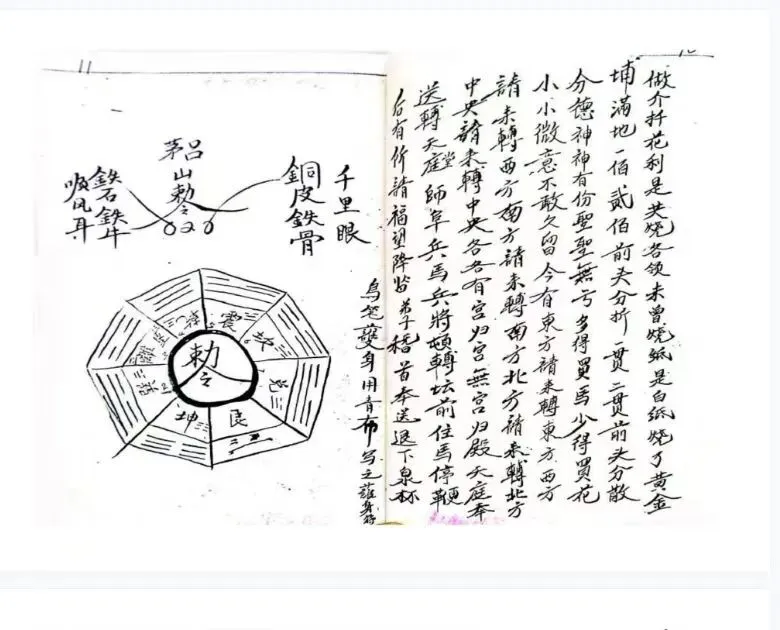 做介扦花利是共燒各領未曾燒紙是白紙燒了黄金
埔滿地一佰貳佰前头分折一貫二貫前头分散
分德神神有份聖聖無亏多得買馬少得買花
小小微意不敢久留今有東方請來轉東方西方
請來轉西方南方請來轉南方北方請來轉北方
中央請來轉中央各各有宫归宫無宫归殿天庭奉
送轉天庭堂師年兵馬兵將頓轉坛前住馬停鞭
后有价請福望降监弟子稽首奉送退下泉杯
12
11
千里眼
銅皮鉄骨
茅山勅令
吕
鉄石鉄牛
順风耳
勅令
震
坎
兑
艮
坤
變身用青布写之護身符